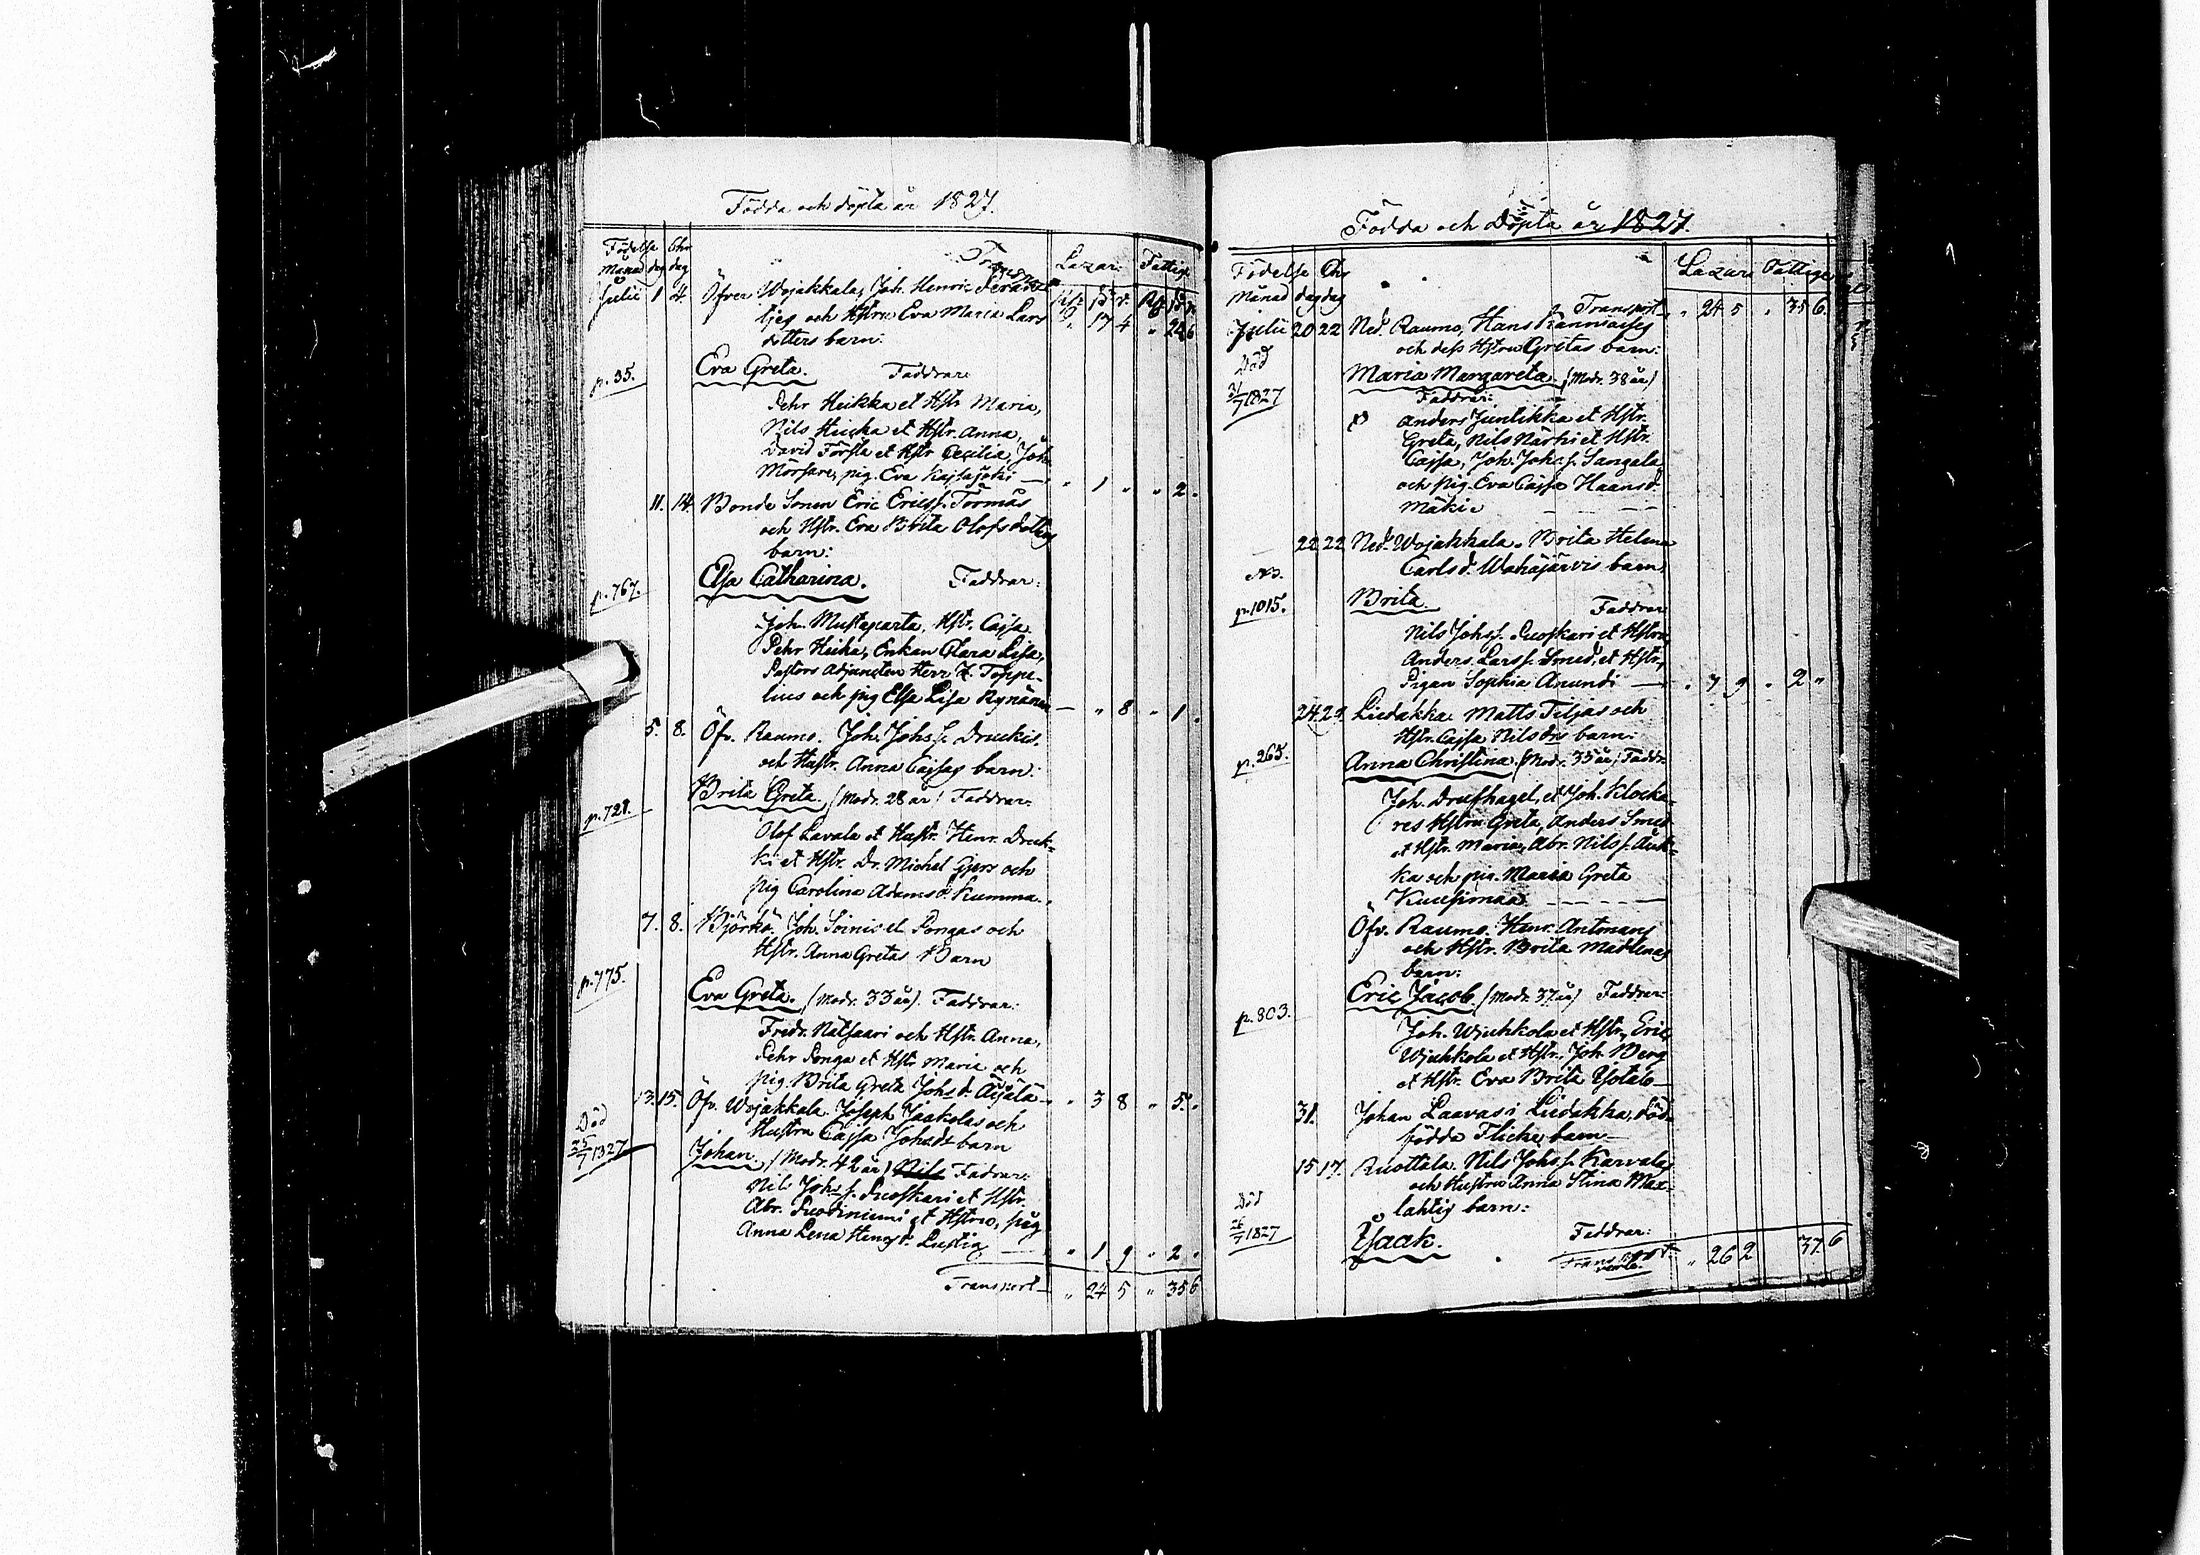 Födda och döpta år 1827.
Födelse Chr
Månad dag dag
Lazar: Fattige
Transport
Julii 1 4. Öfver Wojakkala, Joh. Henric
tjeg och Hstru Eva Maria Lars " 17 4 " 24 6
dotters barn:
p. 35.
Eva Greta. Faddrar:
Pehr Heikka et Hstr Maria,
Nils Heicka et Hstr. Anna,
David Förstla et Hstr Cecilia, Joh.
Mörsare, pig. Eva Kajsa — " 1 " " 2 "
11. 14. Bonde Sonen Eric Ericss. Törmäs
och Hstr. Eva Brita Olofs dotters
barn:
p. 767.
Elsa Catharina. Faddrar:
Joh. Mustaparta, Hstr. Cajsa
Pehr Heika, Enkan Clara Lisa,
Pastors Adjuncten Herr Z. Toppe-
lius och pig Elsa Lisa Rynänen — " 8 " 1 "
5. 8. Öfv. Raumo. Joh. Johs s. Druckis,
och Hustr. Anna Cajsas barn:
p. 721.
Brita Greta. (Modr. 28 år) Faddrar:
Olof Lavala et Hustr. Henr. Druc-
ki et Hstr. Dr. Michel Gyers och
pig Carolina Adamsd. Kumma.
7. 8. Björkö. Joh. Soinis el. Pongas och
Hstr. Anna Gretas Barn
p. 775.
Eva Greta. (Modr. 33 år) Faddrar:
Fredr. Nätsaari och Hstr. Anna,
Pehr Ponga et Hstr Maria och
pig. Brita Greta Johsd. Äijälä — " 3 8 " 5 "
13. 15. Öfv. Wojakkala. Joseph Jaakolas och
Hustru Cajsa Johsds barn
Död
25/7 1827
Johan. (Modr. 42 år) Nils Fadrar:
Nils Johs s. Puoskari et Hstr
Abr. Puodiniemi et Hstru, pig
Anna Lena Henrsd. — " 1 9 " 2 "
Transport — " 24 5 " 35 6
Födda och Döpta år 1827.
Födelse Chr
Månad dag dag
Lazar: Fattige
Transport " 24 5 " 35 6
Julii 20 22 Ned. Raumo, Hans Kanniaises
och dess Hstru Gretas barn:
Död
31/7 1827
Maria Margareta. (Modr. 38 år)
Faddrar:
Anders Juntikka et Hstr.
Greta, Nils Närhi et Hstr.
Cajsa, Joh. Johs s. Sangala
och pig. Eva Cajsa Haansd.
Mäki.
22 22 Ned. Wojakkala. Brita Helena
Carlsd. Wähäjärvis barn,
p. 1015.
Brita. Faddrar
Nils Johss. Puoskari et Hstru,
Anders Larss. Smed, et Hstr.,
Pigan Sophia Anundi — " 7 9 " 2 "
24 29 Liedakka. Matts Tiljas och
Hstr. Cajsa Nilsdrs barn:
p. 265.
Anna Christina. (Modr. 35 år) Faddr:
Joh. Drufhagel, et Joh. Klocka-
res Hstru Greta, Anders Smed
et Hstr. Maria, Abr. Nils s. Auk-
ka och pig. Maria Greta
Kuusimaa.
Öfv. Raumo. Henr. Antmans
och Hstr. Brita Madlenas
barn:
p. 803.
Eric Jacob. (Modr. 37 år) Faddrar:
Joh. Wiuhkola et Hstr., Eric
Wiuhkola et Hstr., Joh. Berg
et Hstr. Eva Brita Ylitalo —
31. Johan Laavas i Liedakka, död-
födda Flicke barn —
15 17. Ruottala. Nils Johs s. Karvalas
och Hustru Anna Stina Max-
lahtis barn:
Död
26/7 1827
Ysaak. Faddrar:
Transport " 26 2 37 6